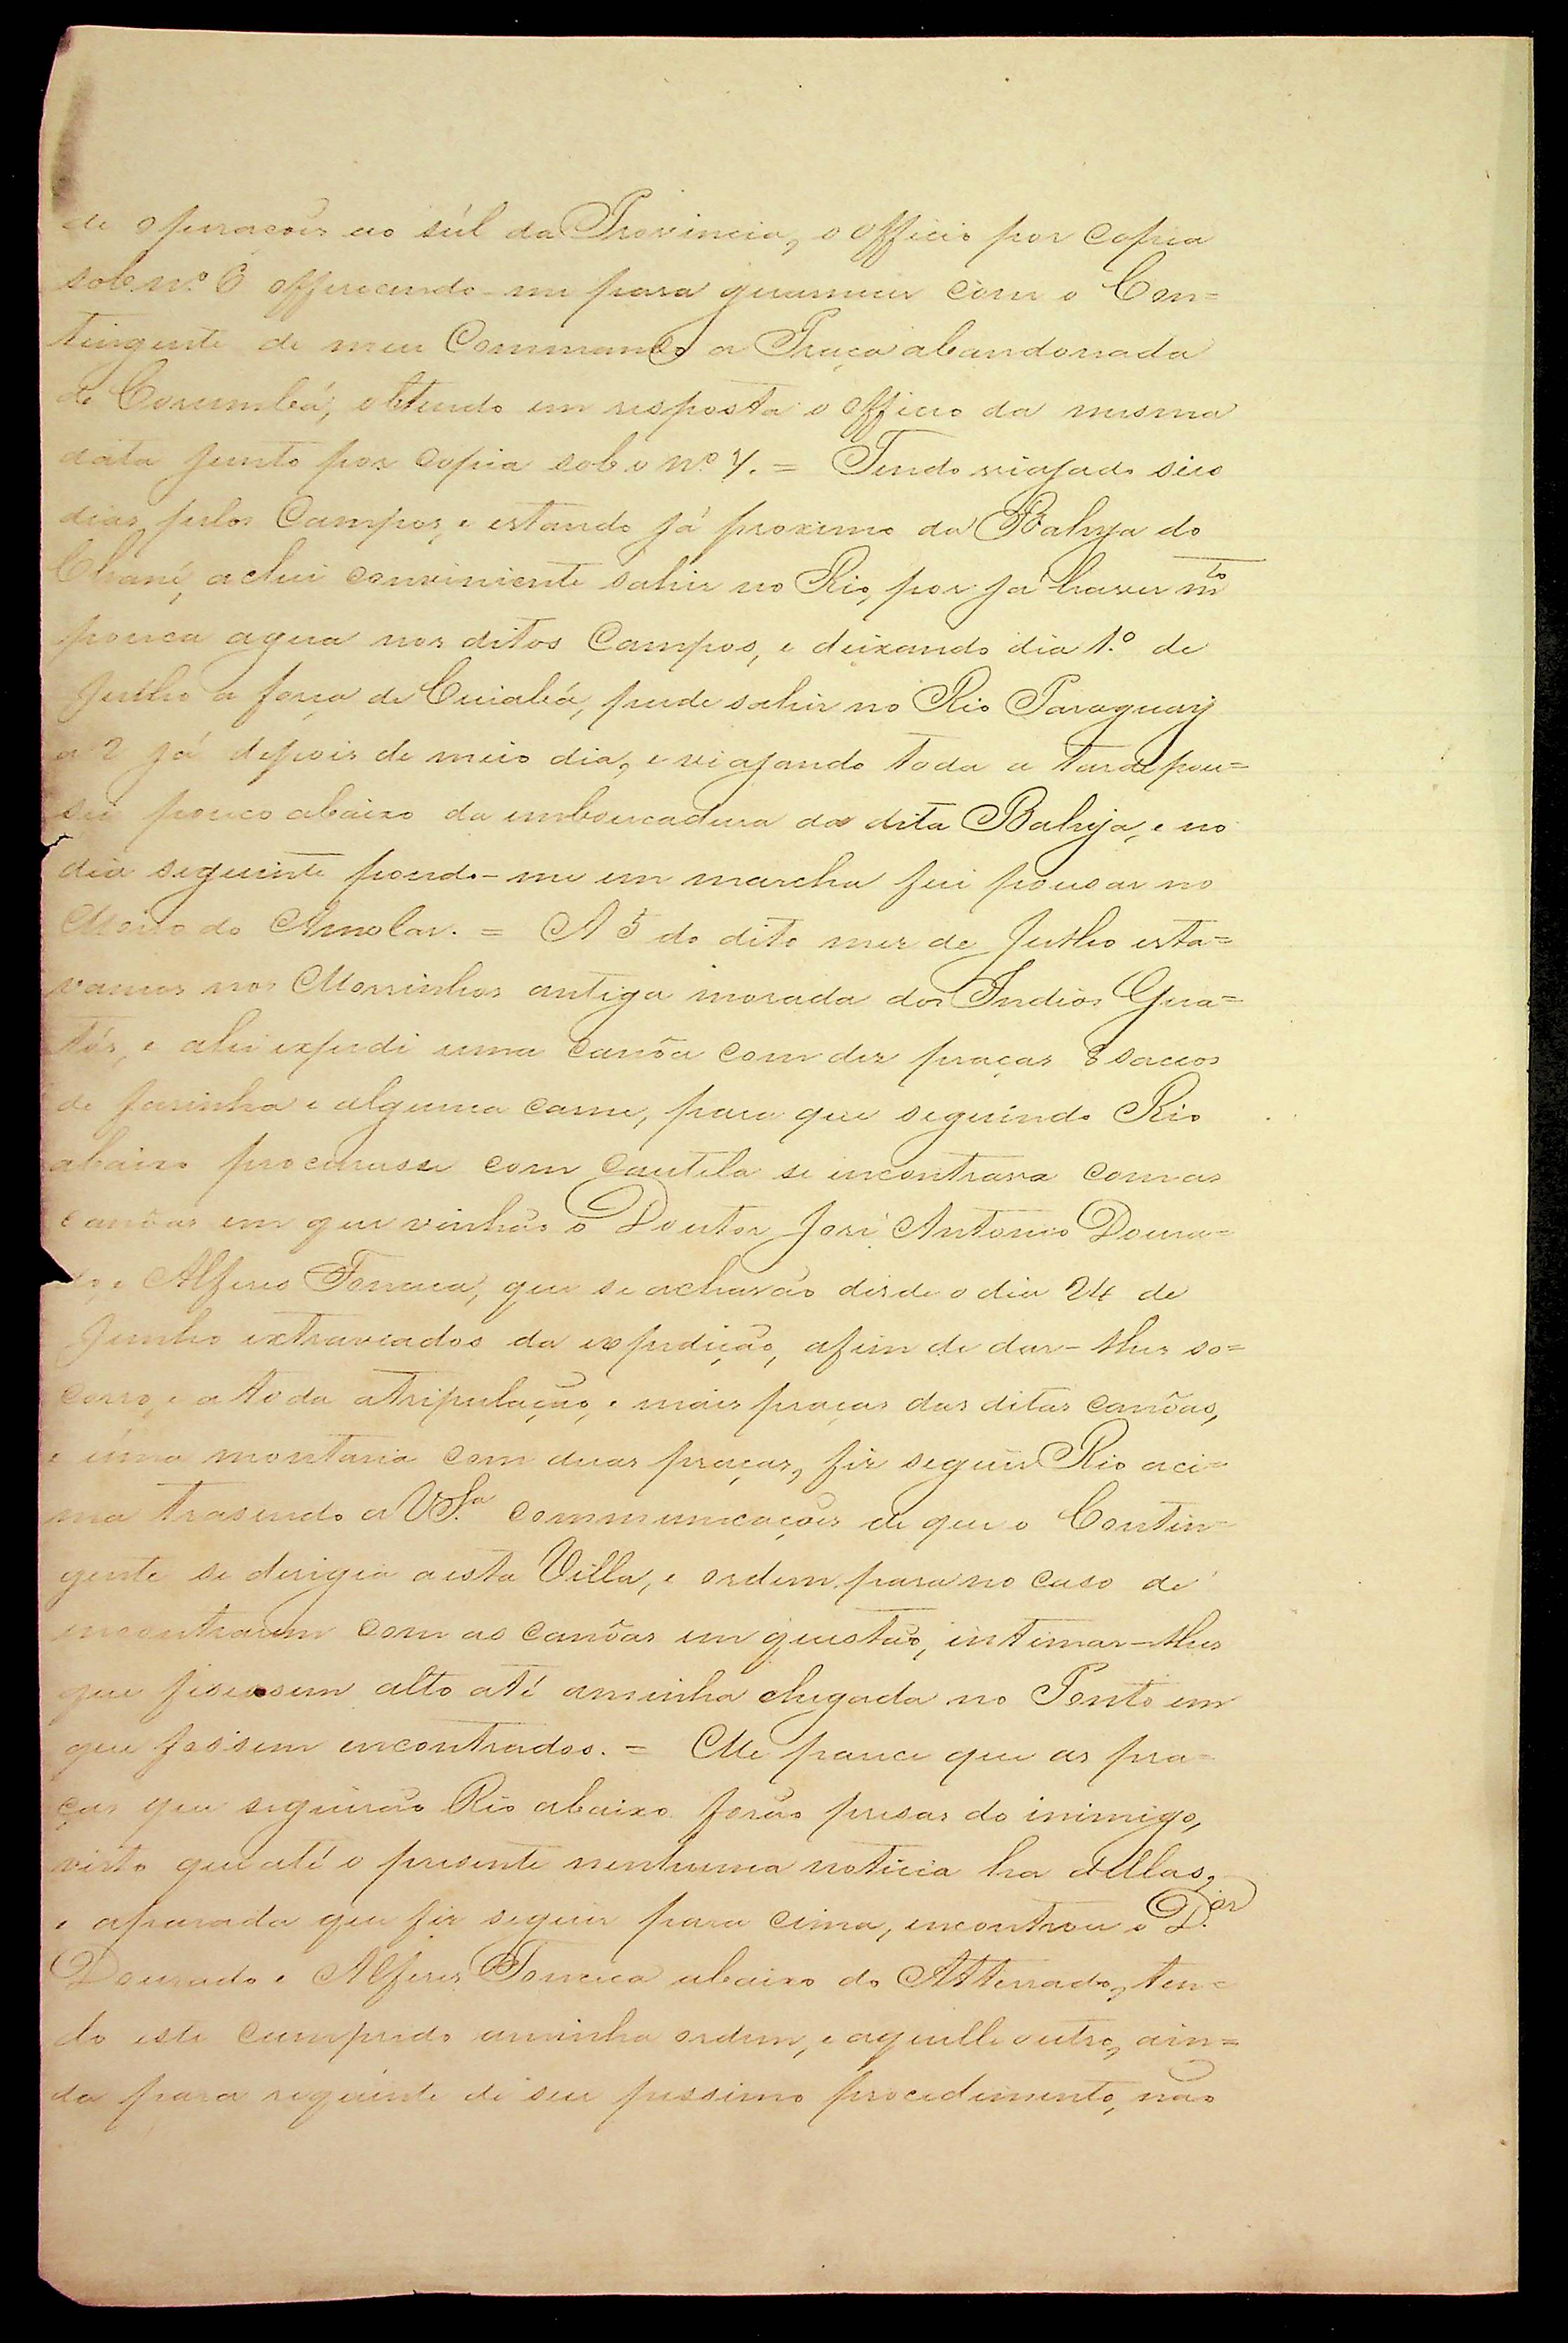 de operacões ao súl da Provincia, o officio por copia
sob nº 6 offerecendo-me para guarnecer com o Con=
tingente de meu Commando a Praça abandonada
de Corumbá, obtendo em resposta o officio da mesma
data junto por copia sob o nº 7. = Tendo viajado seis
dias pelos Campos, e estando já proximo da Bahya do
Chané, achei conviniente sahir no Rio, por já haver mto
pouca agua nos ditos Campos, e deixando dia 1º de
Julho a força de Cuiabá, pude sahir no Rio Paraguay
a 2 já depois de meio dia, e viajando toda a tarde pou=
sei pouco abaixo da emboucadura da dita Bahya, e no
dia seguinte pondo-me em marcha fui pousar no
Morro do Amolar. = A 5 do dito mez de Julho esta=
vamos nos Morrinhos antiga morada dos Indios Gua=
tós, e ahi expedi uma canôa com dez praças 8 saccos
de farinha e alguma carne, para que seguindo Rio
abaixo procurasse com cautela se encontrava com as
canôas em que vinhão o Doutor José Antonio Doura=
do, e Alferes Fonceca, que se achavão desde o dia 24 de
Junho extraviados da expedição, afim de dar-lhes so=
corro, e a toda a tripulação, e mais praças das ditas canôas,
e uma montaria com duas praças, fiz seguir Rio aci=
ma trasendo a VSª communicações de que o Contin=
gente se derigia a esta Villa, e ordem para no caso de
encontrarem com as canôas em questão, intimar-lhes
que fisessem alto até a minha chegada no Ponto em
que fossem encontrados. = Me parece que as pra=
ças que seguirão Rio abaixo forão presas do inimigo,
visto que até o presente nenhuma noticia ha d'ellas,
e a parada que fiz seguir para cima, encontrou o Dor
Dourado e Alferes Fonceca abaixo do Atterrado, ten=
do este cumprido a minha ordem, e aquelle outro, ain=
da para requinte de seu pessimo procedimento, não